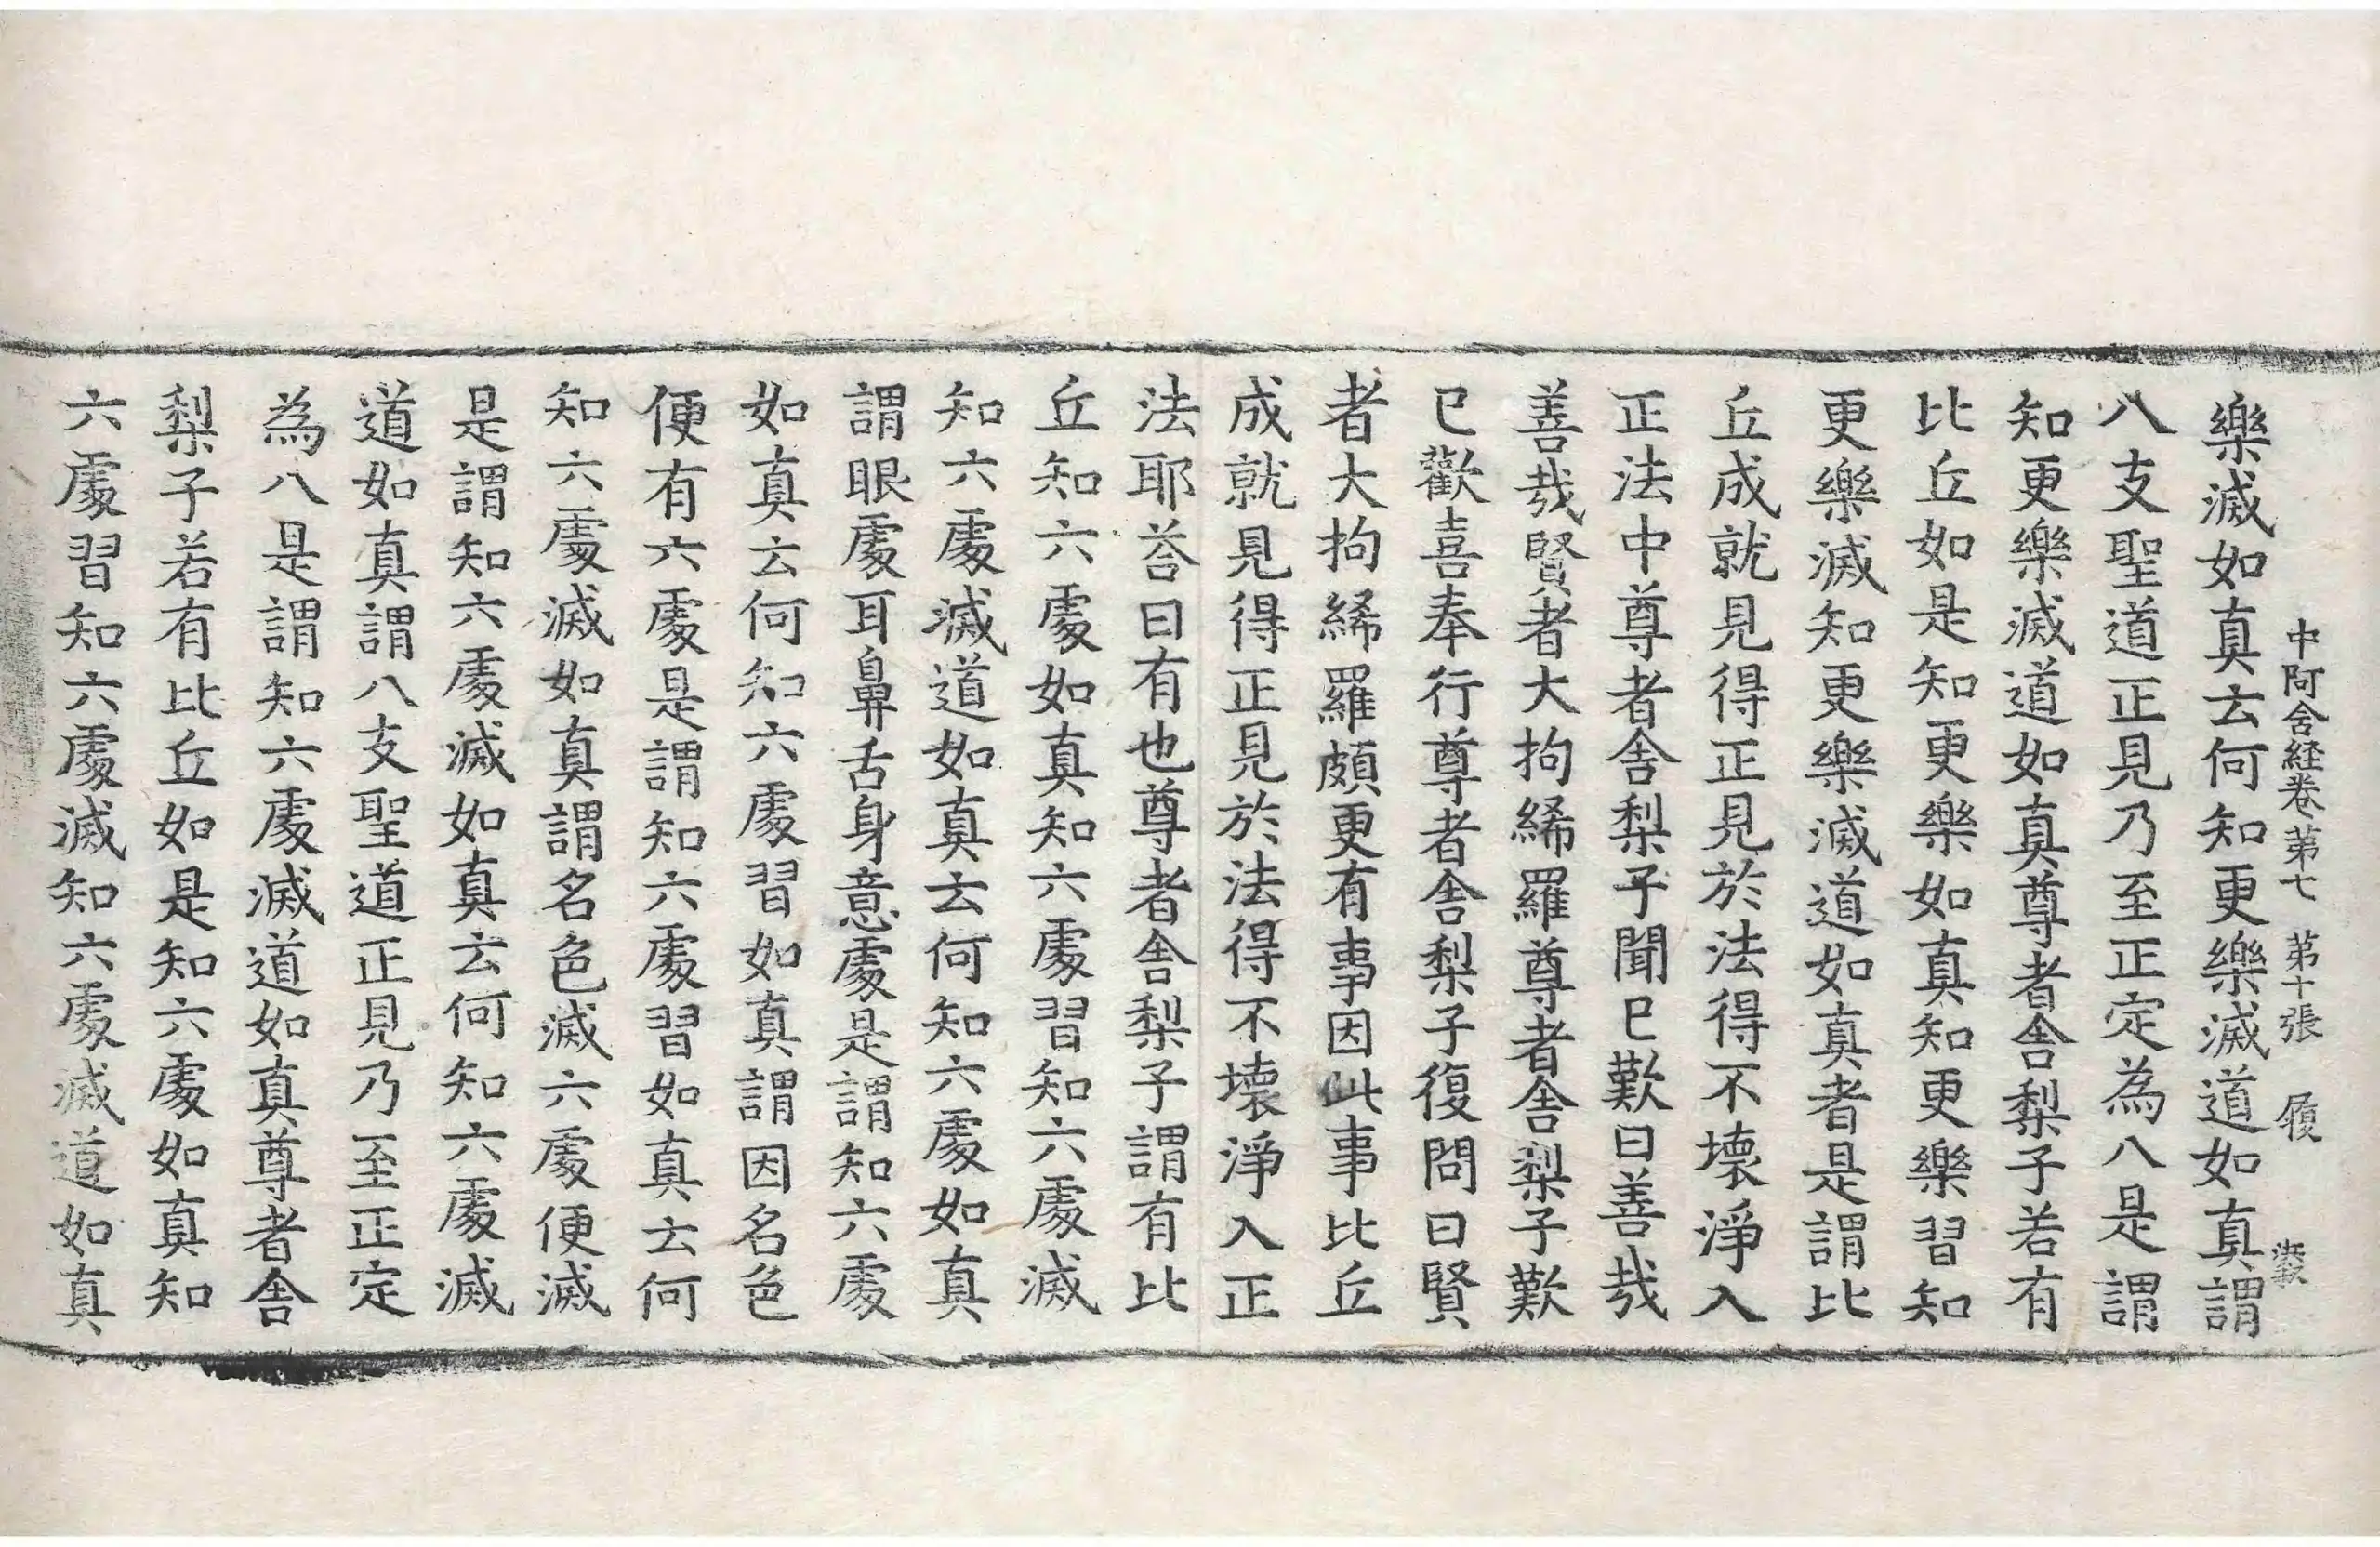 中阿含経卷第七 第十張 履
樂滅如真云何知更樂滅道如真謂
八支聖道正見乃至正定為八是謂
知更樂滅道如真尊者舍梨子若有
比丘如是知更樂如真知更樂習知
更樂滅知更樂滅道如真者是謂比
丘成就見得正見於法得不壞淨入
正法中尊者舍梨子聞已歎曰善哉
善哉賢者大拘絺羅尊者舍梨子歎
已歡喜奉行尊者舍梨子復問曰賢
者大拘絺羅頗更有事因此事比丘
成就見得正見於法得不壞淨入正
法耶荅曰有也尊者舍梨子謂有比
丘知六處如真知六處習知六處滅
知六處滅道如真云何知六處如真
謂眼處耳鼻舌身意處是謂知六處
如真云何知六處習如真謂因名色
便有六處是謂知六處習如真云何
知六處滅如真謂名色滅六處便滅
是謂知六處滅如真云何知六處滅
道如真謂八支聖道正見乃至正定
為八是謂知六處滅道如真尊者舍
梨子若有比丘如是知六處如真知
六處習知六處滅知六處滅道如真